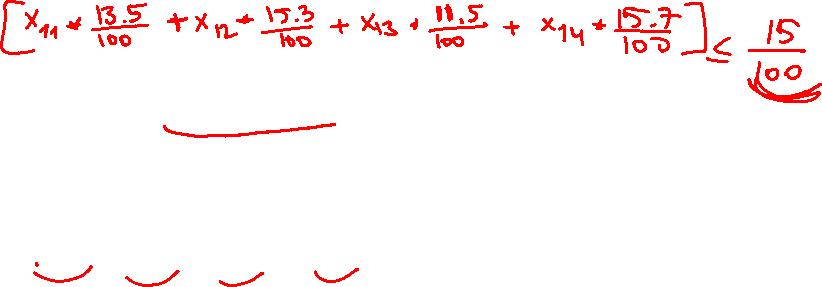 [x11 * 13.5/100 + x12 * 15.3/100 + x13 * 11.5/100 + x14 * 15.7/100] ≤ 15/100